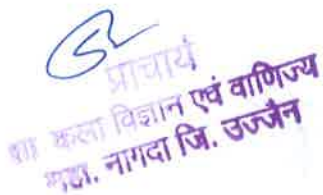 प्राचार्य
शा. कला विज्ञान एवं वाणिज्य
महा. नागदा जि. उज्जैन